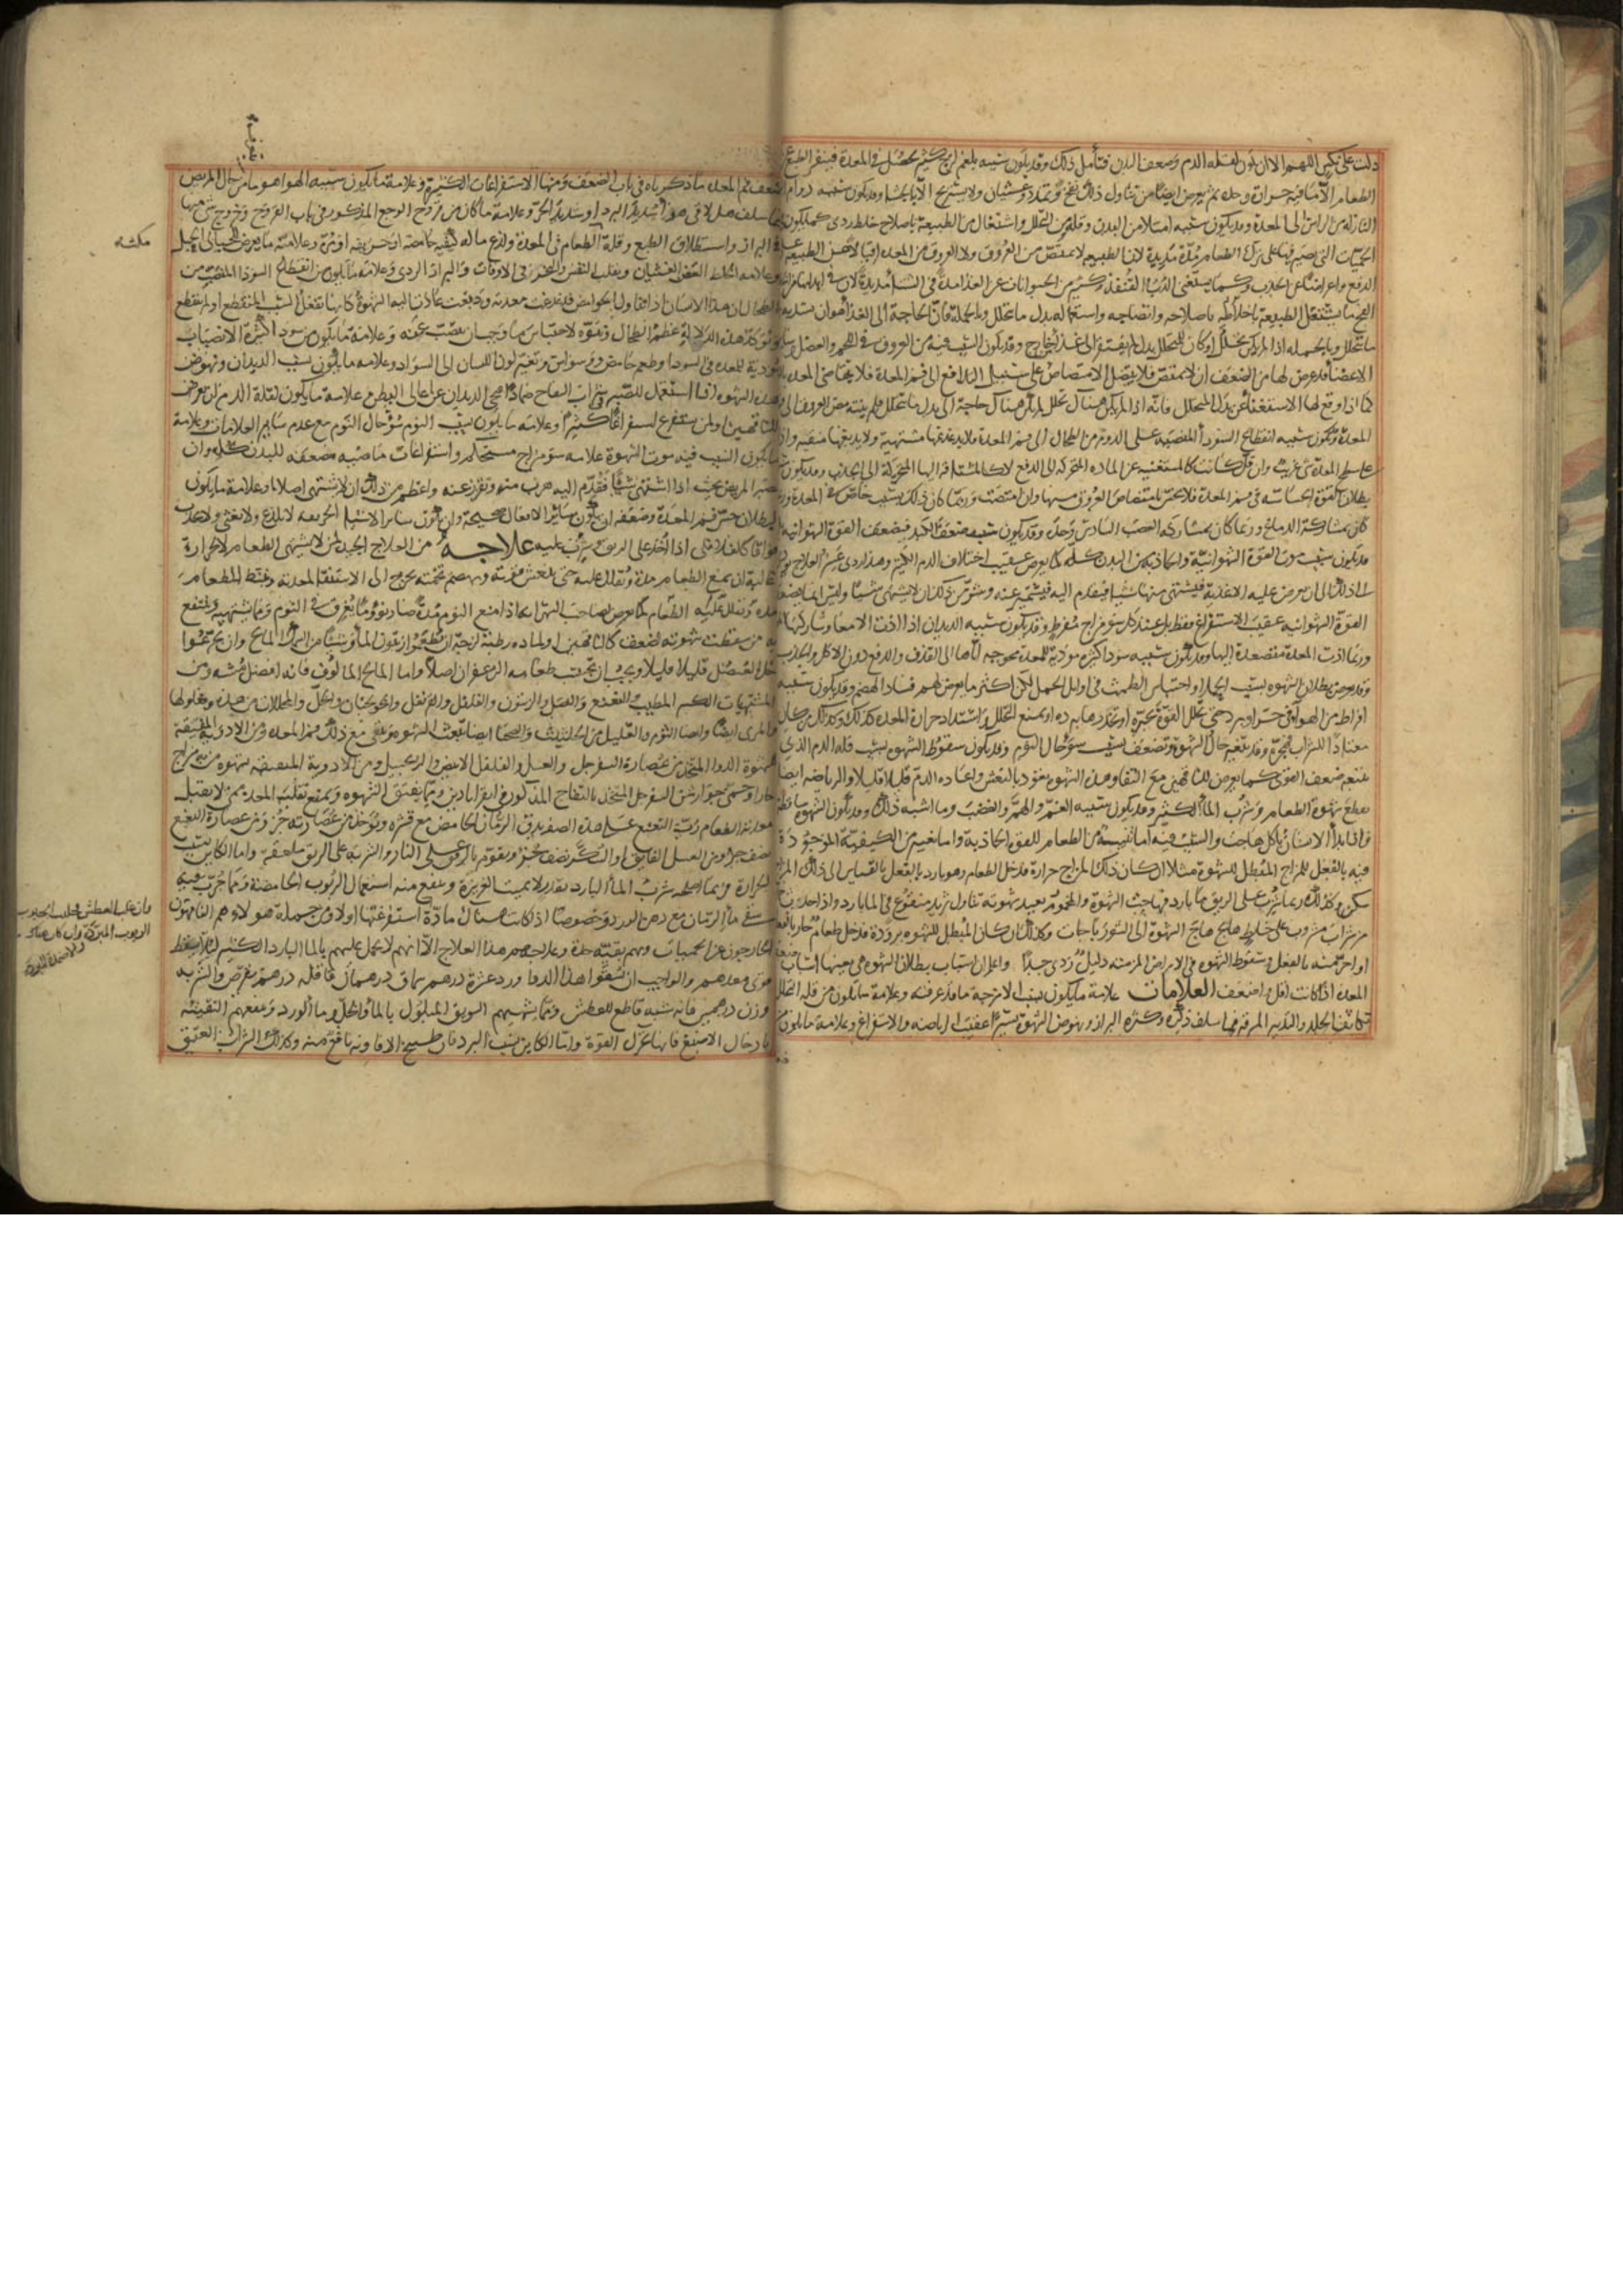 دلت على تكثير اللهم الا ان يكون لقلة الدم وضعف البدن فتأمل ذلك وقد يكون سببه بلغم لزج كثير يحصل في المعدة فينفر الطبع عن
الطعام الا ما فيه حرارة وحدة ثم يعرض ايضا من تناول ذلك نفخ وتمدد وغثيان ولا يستريح الا بالجشا وقد يكون سببه دوام
النازلة من الراس الى المعدة وقد يكون سببه امتلا من البدن وقلة من التحلل واشتغال من الطبيعة باصلاح خلط ردى كما يكون
الحميات التي يصبر فيها على ترك الطعام مدة مديدة لان الطبيعة لا تمتص من العروق ولا العروق من المعدة اقبالا من الطبيعة على
الدفع واعراضا عن الجذب وكما يستغنى الدب والقنفذ وكثير من الحيوانات عن الغذا مدة في الشتا مديدة لان في ابدانها من الخلط
الفج ما يشتغل الطبيعة باحالته باصلاحه وانضاجه واستعماله بدل ما يتحلل وبالجملة فان الحاجة الى الغذا هو ان يسد به
ما يتحلل وبالجملة اذا لم يكن تحلل او كان للمتحلل بدل لم يفتقر الى غذا من خارج وقد يكون السبب فيه من العروق في اللحم والعضل وسائر
الاعضا قد عرض لها من الضعف ان لا تمتص فلا يتصل الامتصاص على سبيل التدافع الى فم المعدة فلا يتقاضى المعدة
كما اذا وقع لها الاستغنا عن بدل المتحلل فانه اذا لم يكن هناك تحلل لم يكن هناك حاجة الى بدل ما يتحلل فلم ينته مص العروق الى
المعدة وقد يكون سببه انقطاع السودا المنصبة على الدوام من الطحال الى فم المعدة فلا يدغدغها مشهية ولا يدبغها منقية واذا
على سطح المعدة شي غريب وان قل كانت كالمستغنية عن المادة المتحركة الى الدفع لا كالمشتاقة اليها المتحركة الى الجذب وقد يكون
بطلان القوة الحساسة في فم المعدة فلا تحس بامتصاص العروق منها وان امتصت وربما كان ذلك بسبب خاص في المعدة وربما
كان بمشاركة الدماغ وربما كان بمشاركة العصب السادس وحده وقد يكون سببه ضعف الكبد فيضعف القوة الشهوانية
وقد يكون بسبب موت القوة الشهوانية والجاذبة من البدن كله كما يعرض عقيب اختلاف الدم الكثير وهذا ردى عسر العلاج
الى ان يعرض عليه الاغذية فيشتهى منها شيا فيقدم اليه فيشمئز عنه وشر من ذلك ان لا يشتهى شيا وليس انما يضعف
القوة الشهوانية عقيب الاستفراغ فقط بل عند كل سو مزاج مفرط وقد يكون سببه الديدان اذا اذت الامعا وشاركها
وربما اذت المعدة متصعدة اليها وقد يكون سببه سودا كثيرة موذية للمعدة محوجة اياها الى القذف والدفع دون الاكل والجذب
وقد يعرض بطلان الشهوة بسبب الحمل او احتباس الطمث في اوايل الحمل لكن اكثر ما يعرض لهم فساد الهضم وقد يكون سببه
افراط من الهوا في حر او برد حتى يحلل القوة بحره او يخدرها ببرده او يمنع التحلل واشتداد حرارة المعدة كذلك وكذلك من كان
معتادا للشراب فهجره وقد يتغير حال الشهوة وتضعف بسبب سو حال النوم وقد يكون سقوط الشهوة بسبب قلة الدم الذي
يتبعه ضعف القوى كما يعرض للناقهين مع النقا وهذه الشهوة تعود بالتنعش واعادة الدم قليلا قليلا والرياضة ايضا
تقطع شهوة الطعام وشرب الما الكثير وقد يكون سببه الغم والهم والغضب وما اشبه ذلك وقد يكون الشهوة ساقطة
فاذا بدا الانسان ياكل هاجت والسبب فيه اما تنبيه من الطعام للقوة الجاذبة واما تغيير من الكيفية الموجودة
فيه بالفعل للمزاج المبطل للشهوة مثلا ان كان ذلك المزاج حرارة فدخل الطعام وهو بارد بالفعل بالقياس الى ذلك المزاج
سكن وكذلك ربما شرب على الريق ما بارد فهاجت الشهوة والمخمور يعيد شهوته تناول ثريد منقوع في الما البارد واذا حدث
من شراب مشروب على خلط هايج هاج الشهوة الى الشوربا جات وكذلك ان كان المبطل للشهوة برودة فدخل طعام حار بالفعل
او احر منه بالفعل وسقوط الشهوة في الامراض المزمنة دليل ردى جدا واعلم ان اسباب بطلان الشهوة هي بعينها اسباب ضعف
المعدة اذا كانت اقل واضعف العلامات علامة ما يكون بسبب الامزجة ما قد عرفته وعلامة ما يكون من قلة التحلل
تكاثف الجلد والتدبير المرفه فيما سلف ذكره وكثرة البراز ونهوض الشهوة يسيرا عقيب الرياضة والاستفراغ وعلامة ما يكون
ضعف فم المعدة ما ذكرناه في باب الضعف ومنها الاستفراغات الكثيرة وعلامة ما يكون سببه الهوا هو ما من حال المريض
فيما سلف هل لاقى هوا شديد البرد او شديد الحر وعلامة ما كان من قروح الوجع المذكور في باب القروح وخروج شي منها
في البراز واستطلاق الطبع وقلة الطعام في المعدة ولذع ما له كيفية حامضة او حريفة او مرة وعلامة ما يعرض للحبالى الحبل
وعلامة الخلط العفن الغثيان وتقلب النفس والبخر في الاوقات والبراز الردى وعلامة ما يكون من انقطاع السودا المنصب من
الطحال ان هذا الانسان اذا تناول الحوامض فدغدغت معدته ودبغت عادت اليه الشهوة كانها تفعل السبب المنقطع او لم ينقطع
وتوكد هذه الدلالة عظم الطحال ونتوه لاحتباس ما وجب ان ينصب عنه وعلامة ما يكون من سودا كثيرة الانصباب
موذية للمعدة قي السودا وطعم حامض ووسواس وتغير لون اللسان الى السواد وعلامة ما يكون بسبب الديدان ونهوض
هذه الشهوة اذا استعمل للصبر في شراب التفاح ضمادا فنحى الديدان عن اعالى البطن علامة ما يكون لقلة الدم ان يعرض
للناقهين او لمن يستفرغ استفراغا كثيرا وعلامة ما يكون بسبب النوم سو حال النوم مع عدم ساير العلامات وعلامة
ما يكون السبب فيه موت الشهوة علامه سو مزاج مستحكم واستفراغات ماضية مضعفة للبدن كله وان
يصير المريض بحيث اذا اشتهى شيا فقدم اليه هرب منه وتقزز عنه واعظم من ذلك ان لا يشتهى اصلا وعلامة ما يكون
لبطلان حس فم المعدة وضعفه ان يكون ساير الافعال صحيحة وان يكون ساير الاشيا الحريفة لا تلذع ولا تغثي ولا تحدث
فواقا كالفلافلي اذا اخذ على الريق وشرب عليه علاجه من العلاج الجيد لمن لا يشتهى الطعام لا لحرارة
غالبة ان يمنع الطعام مدة ويقلل عليه حتى ينعش قوته ويهضم تخمته يحوج الى الاستنقا لمعدته وينشط للطعام
مدة ويقلل عليه الطعام كما يعرض لصاحب السهر انه اذا منع النوم مدة صار نووما يغرق في النوم ومما يشهيه وينتفع
به من سقطت شهوته لضعف كالناقهين او لمادة رطبة لزجة ان يطعموا زيتون الما وشيا من السمك المالح وان يجرعوا
خل العنصل قليلا قليلا ويجب ان يجنب طعامه الزعفران اصلا واما المالح المالوف فانه افضل مشه ومن
المشهيات الكبر المطيب والنعنع والبصل والزيتون والفلفل والقرنفل والخولنجان والخل والمخللات من هذه ومخلولها
والمري ايضا وايضا الثوم والقليل من الحلتيت والصحنا ايضا تبعث الشهوة وتنقي مع ذلك فم المعدة ومن الادوية المفيقة
للشهوة الدوا المتخذ من عصارة السفرجل والعسل والفلفل الابيض والزنجبيل ومن الادوية المنهضة لشهوة من به مزاج
حار او حمى جوارشن السفرجل المتخذ بالتفاح المذكور في القراباذين ومما يفتق الشهوة ويمنع تقلب المعدة ممن لا يقبل
معدته الطعام رب النعنع على هذه الصفة يدق الرمان الحامض مع قشره ويوخذ من عصارته جزء ومن عصارة النعنع
نصف جزا ومن العسل الفايق او السكر نصف جزو يقوم بالرفق على النار والشربة على الريق ملعقة واما الكاين بسبب
الحرارة فربما اصلحه شرب الما البارد بقدر لا يميت الغريزة وينفع منه استعمال الربوب الحامضة ومما جرب فيه
سقي ما الرمان مع دهن الورد وخصوصا اذا كانت هناك مادة استفرغتها اولا ومن جملة هولاء هم الناقهون
الخارجون عن الحميات وبهم بقية حدة وعلاجهم هذا العلاج الا انهم لا يحمل عليهم بالما البارد الكثير ليلا يسقط
قوى معدهم والواجب ان يسقوا هذا الدوا ورد عشرة درهم سماق درهمان قاقلة درهم يقرص والشربة
وزن درهمين فانه مشهة قاطع للعطش ومما يشهيهم السويق المبلول بالما والخل وما الورد وينفعهم التقيئة
بادخال الاصبع فانها تحرك القوة واما الكاين بسبب البرد فان طبيخ الافاويه نافع منه وكذلك الشراب العتيق